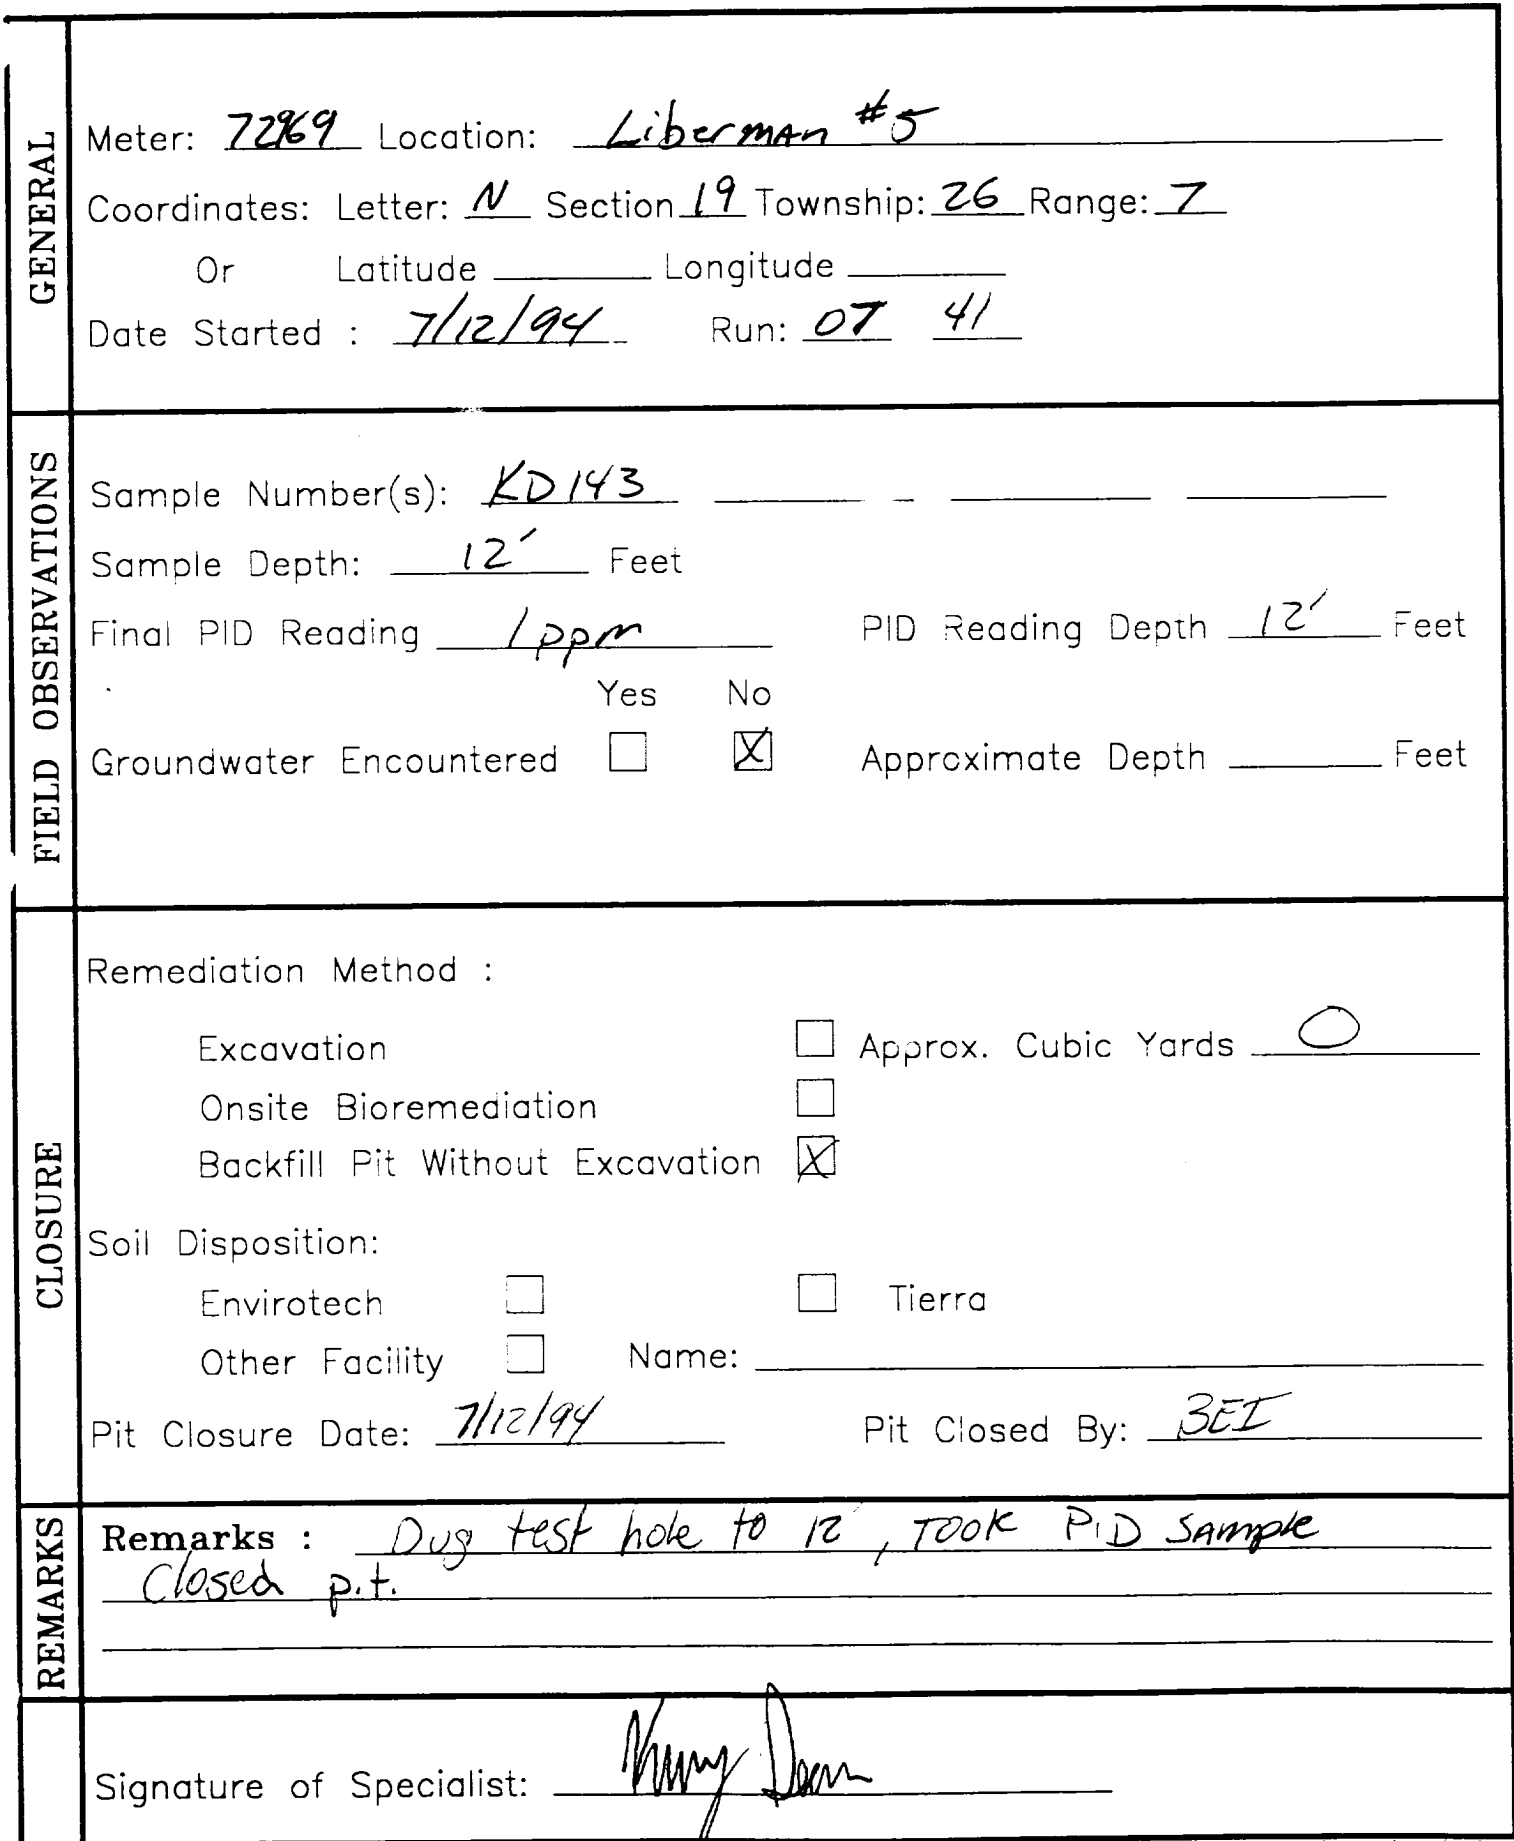 GENERAL
Meter: 72969 Location: Liberman #5
Coordinates: Letter: N Section 19 Township: 26 Range: 7
Or Latitude Longitude
Date Started : 7/12/94 Run: 07 41
FIELD OBSERVATIONS
Sample Number(s): KD143
Sample Depth: 12' Feet
Final PID Reading 1ppm PID Reading Depth 12' Feet
Yes No
Groundwater Encountered X Approximate Depth Feet
CLOSURE
Remediation Method :
Excavation Approx. Cubic Yards 0
Onsite Bioremediation
Backfill Pit Without Excavation X
Soil Disposition:
Envirotech Tierra
Other Facility Name:
Pit Closure Date: 7/12/94 Pit Closed By: BEI
REMARKS
Remarks : Dug test hole to 12', Took PID Sample
Closed pit.
Signature of Specialist: